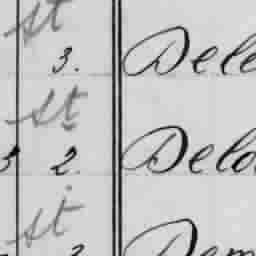 st
3. Dele
st
3 2. Delo
st